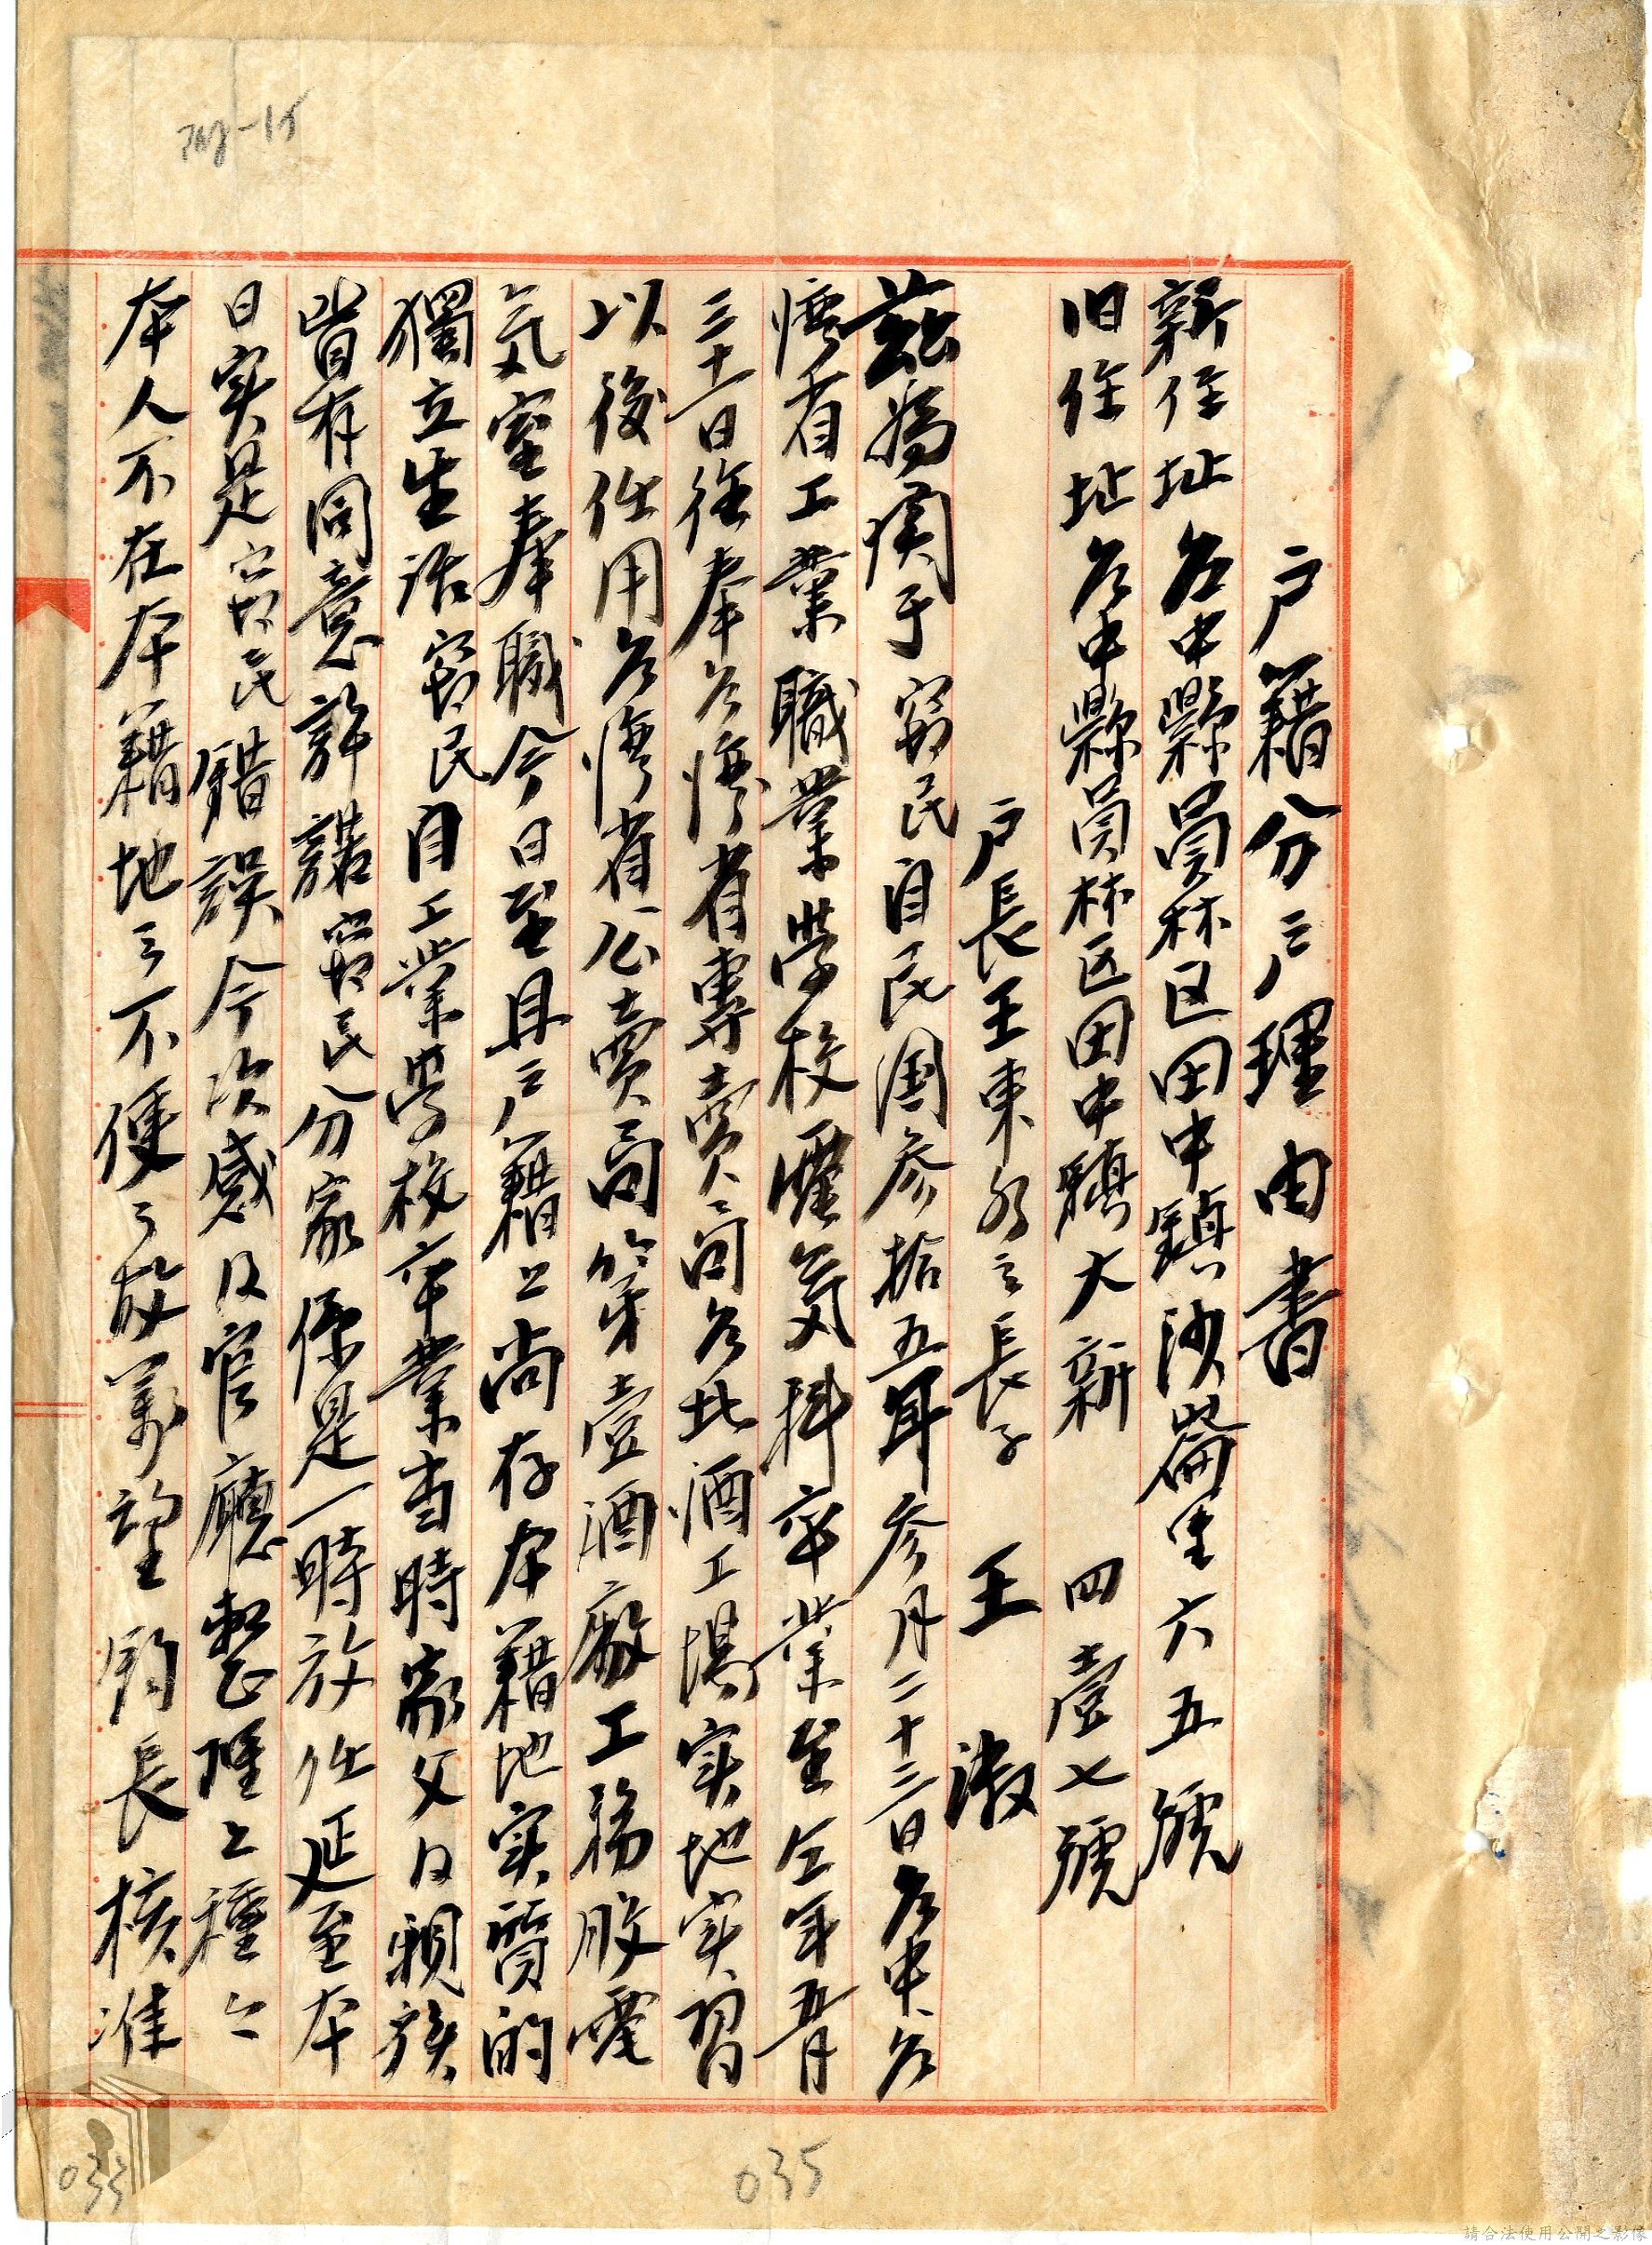 戶籍分戶理由書
新住址台中縣員林区田中鎮沙崙里六五號
旧住址台中縣員林区田中鎮大新 四壹七號
戶長王東 之長子 王 淑
茲為関于窮民自民国參拾五年參月二十三日台中台
湾省工業職業学校電気科卒業至仝年五月
三十一日徃奉台湾省專賣局台北酒工場実地実習
以後任用台湾省公賣局第壹酒廠工務股電
気室奉職今日至且戶籍上尚存本籍地実質的
獨立生活窮民自工業学校卒業当時家父及親族
皆有同意許諾窮民分家係是一時放任延至本
日実是窮民錯誤今次感及官廳整理上種々
本人不在本籍地之不便之故萬望鈞長核准
035
033
請合法使用公開之影像